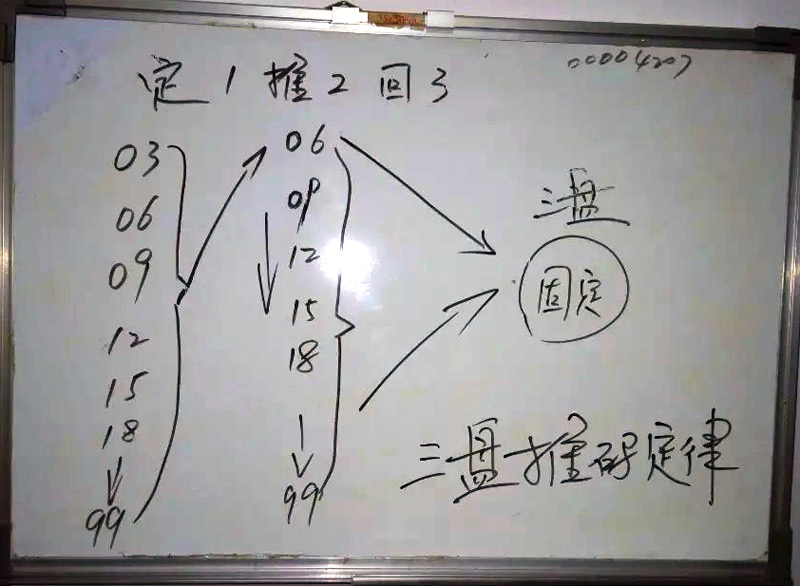 定1推2回3
00004207
03
06
09
12
15
18
99
06
09
12
15
18
99
三盘
固定
三盘推码定律